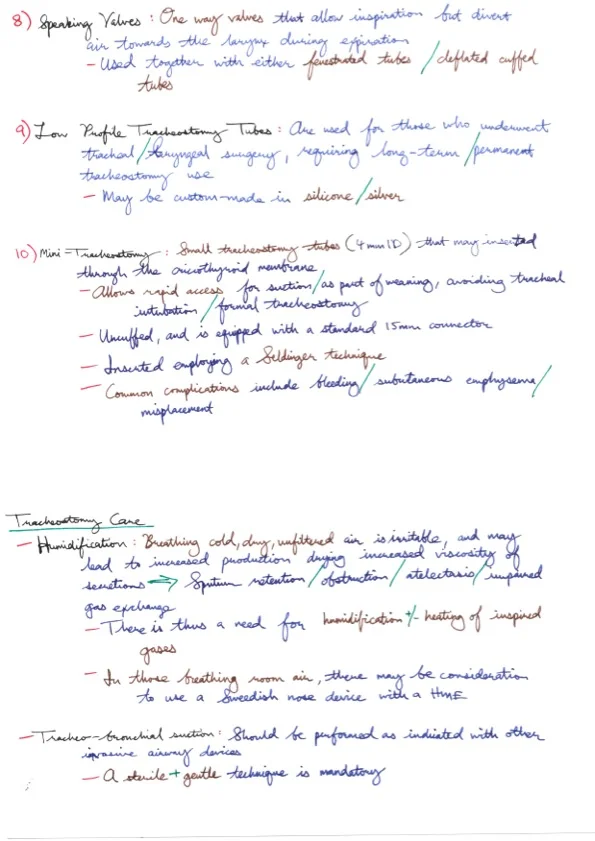 8) Speaking Valves : One way valves that allow inspiration but divert
air towards the larynx during expiration
– Used together with either fenestrated tubes / deflated cuffed
tubes
9) Low Profile Tracheostomy Tubes : Are used for those who underwent
tracheal / laryngeal surgery, requiring long-term / permanent
tracheostomy use
– May be custom-made in silicone / silver
10) Mini-Tracheostomy : Small tracheostomy tubes (4mm ID) that may inserted
through the cricothyroid membrane
– Allows rapid access for suction / as part of weaning, avoiding tracheal
intubation / formal tracheostomy
– Uncuffed, and is equipped with a standard 15mm connector
– Inserted employing a Seldinger technique
– Common complications include bleeding / subcutaneous emphysema /
misplacement
Tracheostomy Care
– Humidification : Breathing cold, dry, unfiltered air is irritable, and may
lead to increased production drying increased viscosity of
secretions => Sputum retention / obstruction / atelectasis / impaired
gas exchange
– There is thus a need for humidification +/- heating of inspired
gases
– In those breathing room air, there may be consideration
to use a Swedish nose device with a HME
– Tracheo-bronchial suction : Should be performed as indicated with other
invasive airway devices
– A sterile + gentle technique is mandatory